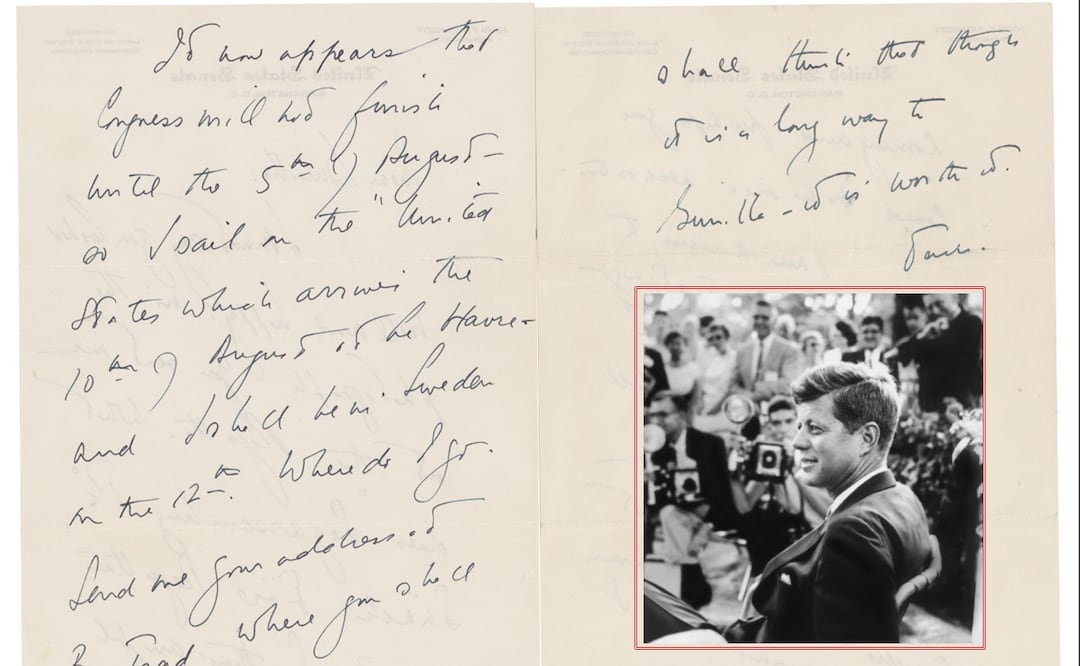 United States Senate
WASHINGTON, D.C.
It now appears that
Congress will not finish
until the 5th of August –
so I sail on the "United
States which arrives the
10th of August at Le Havre –
and I shall be in Sweden
on the 12th. Where do I go.
Send me your address at
where you shall
United States Senate
WASHINGTON, D.C.
shall think that though
it is a long way to
Gunilla – it is worth it.
Jack.